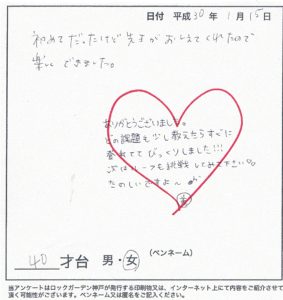 日付 平成30年 1月 15日
初めてだったけど先生がおしえてくれたので
楽しくできました。
ありがとうございました。
どの課題も少し教えたらすぐに
登れててびっくりしました!!!
次はルーフも挑戦してみて下さい
たのしいですよ〜
40才台 男・女 (ペンネーム)
当アンケートはロックガーデン神戸が発行する印刷物又は、インターネット上にて内容をご紹介させて
頂く可能性がございます。ペンネーム又は匿名をご記入ください。